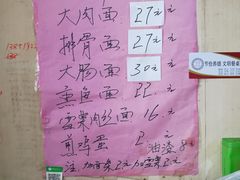 大肉面 27元
排骨面 27元
大肠面 30元
熏鱼面 22元
雪菜肉丝面 16元
煎鸡蛋 2元
油渣8
注：加面条2元 加雪菜2元
节俭养德 文明餐桌